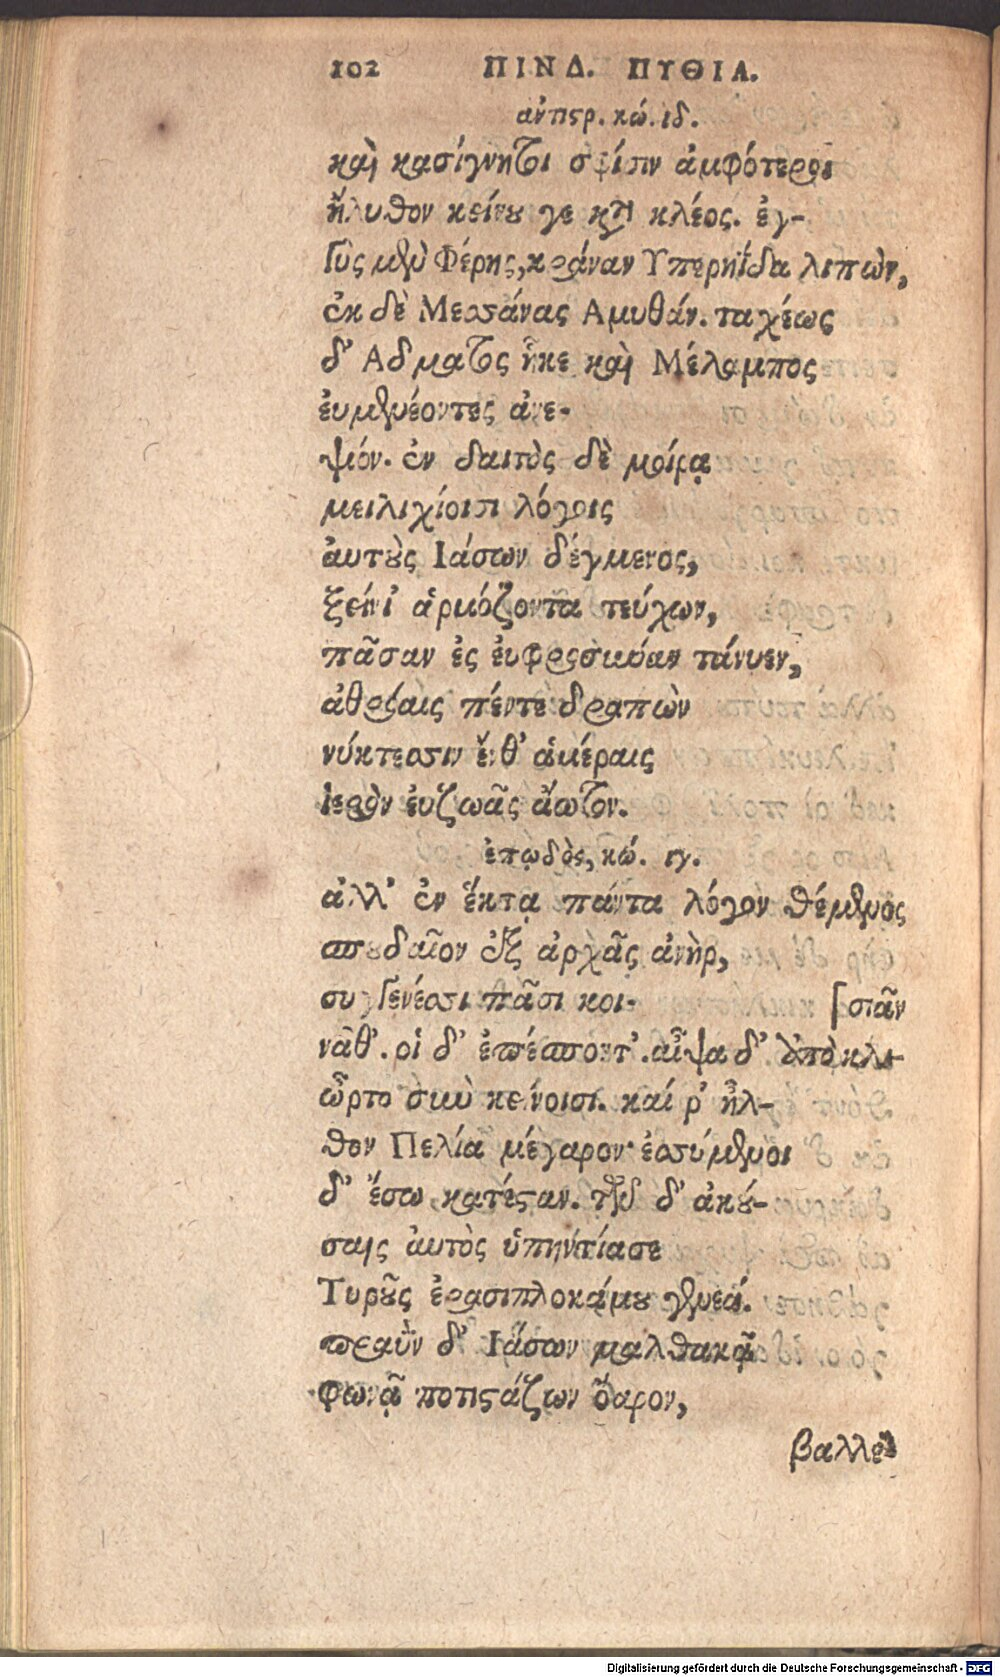 102 ΠΙΝΔ. ΠΥΘΙΑ.
ἀντιστρ. κώ. ιδ.
καὶ κασίγνητοι σφίσιν ἀμφότεροι
ἤλυθον κείνου γε κτ κλέος. ἐγ-
γὺς μὲν Φέρης, κράναν Υπερηΐδα λιπὼν,
ἐκ δὲ Μεσσάνας Αμυθάν. ταχέως
δ' Αδματος ἧκε καὶ Μέλαμπος
ἐυμενέοντες ἀνε-
ψιόν. ἐν δαιτὸς δὲ μοίρᾳ
μειλιχίοισι λόγοις
ἀυτοὺς Ιάσων δέγμενος,
ξείνι' ἁρμόζοντα τεύχων,
πᾶσαν ἐς ἐυφροσύναν τάνυεν,
ἀθρόαις πέντε δραπὼν
νύκτεσσιν ἔνθ' ἁμέραις
ἱερὸν ἐυζωᾶς ἄωτον.
ἐπῳδὸς, κώ. ιγ.
ἀλλ' ἐν ἕκτᾳ πάντα λόγον θέμενος
σπουδαῖον ἐξ ἀρχᾶς ἀνὴρ,
συγγενέσσι πᾶσι κοι- [σιᾶν
νᾶθ'. οἱ δ' ἐπέσποντ'. αἶψα δ' ὑπὸ κλι-
ὦρτο σὺν κείνοισι. καί ῥ' ἦλ-
θον Πελία μέγαρον· ἐσσύμενοι
δ' ἔσω κατέσταν. τῶν δ' ἀκού-
σαις ἀυτὸς ὑπηντίασε
Τυροῦς ἐρασιπλοκάμου γενεά.
πραῢν δ' Ιάσων μαλθακᾷ
φωνᾷ ποτιστάζων ὄαρον,
βάλλετο
Digitalisierung gefördert durch die Deutsche Forschungsgemeinschaft - DFG